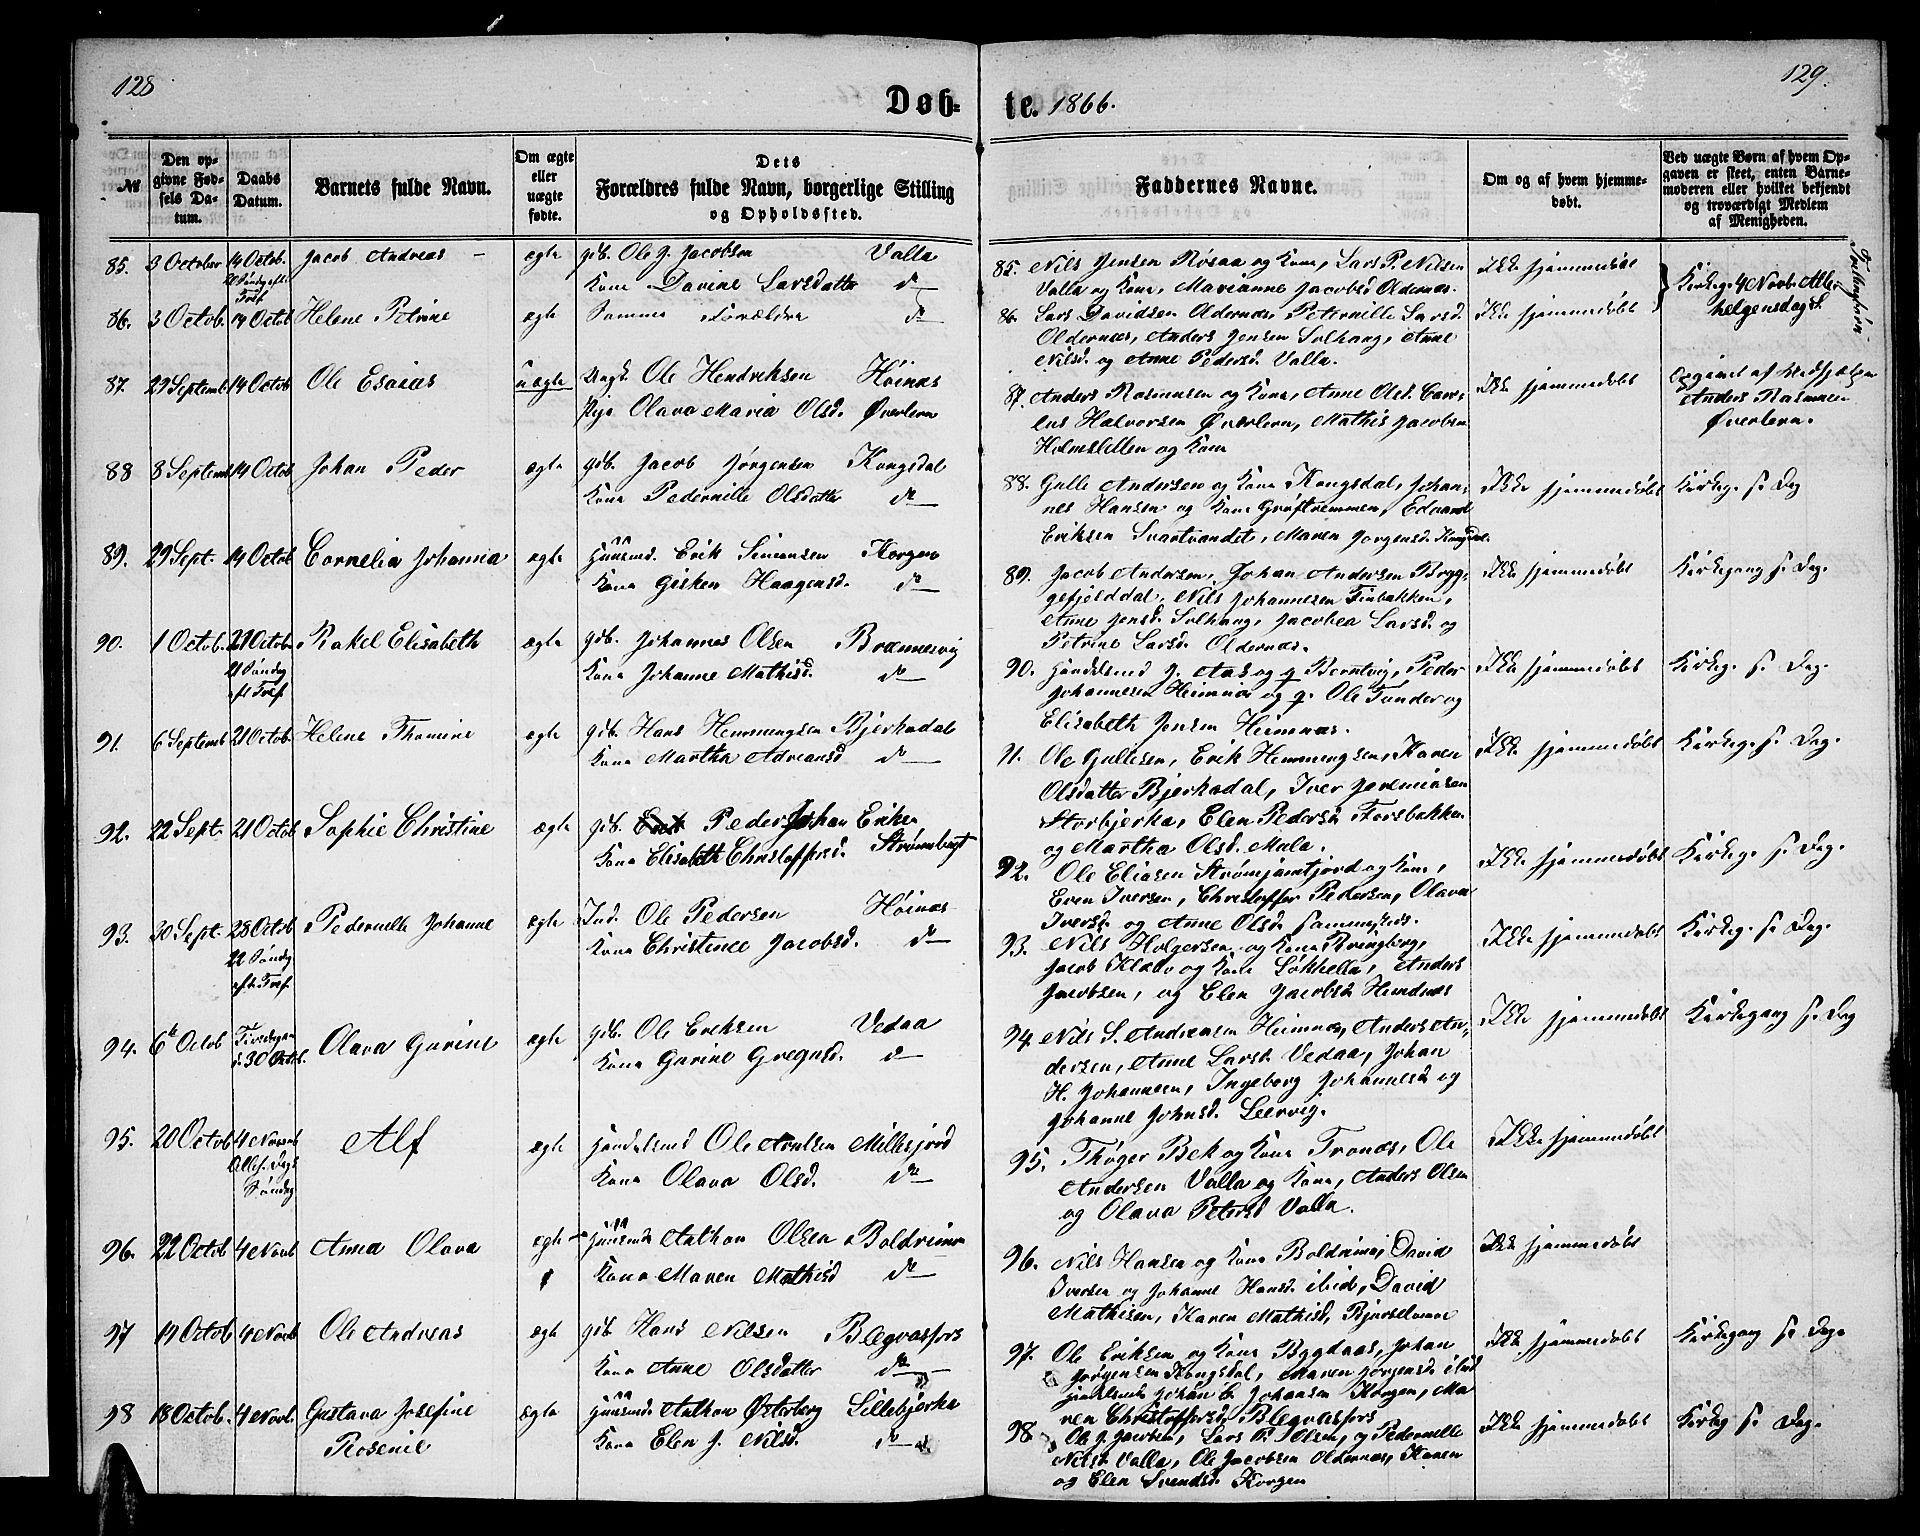 128
129.
Døb-
te. 1866.
№
Den op-
givne Fød-
sels Da-
tum.
Daabs
Datum.
Barnets fulde Navn.
Om ægte
eller
uægte
fødte.
Dets
Forældres fulde Navn, borgerlige Stilling
og Opholdssted.
Faddernes Navne.
Om og af hvem hjemme-
døbt.
Ved uægte Børn af hvem Op-
gaven er skeet, enten Barne-
moderen eller hvilket bekjendt
og troværdigt Medlem
af Menigheden.
85. 3 October 14 Octob. Jacob Andreas - ægte gdb. Ole J. Jacobsen Valla
20 Søndag eft.
Tref.
Kone Davine Larsdatter do
86. 3 Octob. 14 Octob Helene Petrine ægte Samme Forældre do
87. 29 Septemb. 14 Octob Ole Esaias uægte Ungk. Ole Hendriksen Høinæs
Pige Olava Maria Olsd. Øverleren
88 8 Septemb 14 Octob Johan Peder ægte gdb. Jacob Jørgensen Kongsdal
Kone Pedernille Olsdatter do
89. 29 Sept. 14 Octob Cornelia Johanna ægte Huusmd. Erik Simonsen Korgen
Kone Gisken Haagensd. do
90. 1 Octob. 21 Octob. Rakel Elisabeth ægte gdb. Johannes Olsen Brennesvig
21 Søndag
eft Tref
Kone Johanne Mathisd. do
91. 6 Septemb 21 Octob. Helene Thomine ægte gdb. Hans Hemmingsen Bjerkadal
Kone Martha Adriansd do
92. 22 Sept. 21 Octob Sophie Christine ægte gdb. Peder Johan Eriksen
Kone Elisabeth Christoffersd. Strømsbugt
93. 30 Sept. 28 Octob Pedernille Johanne ægte Ind. Ole Pedersen Høinæs
22 Søndag
eft. Tref.
Kone Christine Jacobsd. do
94. 6te Octob 30 Octob. Olava Gurine ægte gdb. Ole Eriksen Vedaa
Kone Gurine Gregusd. do
95. 20 Octob 4 Novemb Alf ægte Handelsmd Ole Millesjord
Alleh. Dags
Søndag
Kone Olava Olsd. do
96. 22 Octob 4 Novb Anna Olava ægte Huusmd Anthon Olsen Boldrimo
Kone Maren Mathisd do
97 19 Octob 4 Novb Ole Andreas ægte gdb Hans Nilsen Blegvasfors
Kone Anne Olsdatter do
98 18 Octob. 4 Novb. Gustava Josefine ægte Huusmd Anthon Østerberg Lillebjerka
Rosenie
Kone Elen J. Nilsd. do
85. Nils Jensen Røsaa og Kone, Lars P. Nilsen
Valla og Kone, Marianne Jacobsd Oldernæs.
Ikke hjemmedøbt
Kirkeg. 4 Novb. Alle-
helgensdag S.
Tvillingbørn
86. Lars Davidsen Oldernæs, Peternille Larsd.
Oldernæs, Anders Jensen Solhaug, Anne
Nilsd. og Anne Pedersd. Valla.
Ikke hjemmedøbt
87. Anders Rasmussen og Kone, Anne Olsd. Cor-
lius Halvorsen Øverleren, Mathis Jacobsen
Holmslillen og Kone
Ikke hjemmedøbt
Opgivet af Medhjælper
Anders Rasmusen
Øverleren.
88. Gulle Andersen og Kone Kongsdal, Johan-
nes Hansen og Kone Grøftremmen, Edvard
Eriksen Svartvandet, Maren Jørgensd. Kongsdal.
Ikke hjemmedøbt Kirkeg. s. Dag
89. Jacob Andersen, Johan Andersen Bryg-
gefjelddal, Nils Johannesen Finbakken,
Anne Jensd. Solhaug, Jacobea Larsd og
Petrine Larsd. Oldernæs.
Ikke hjemmedøbt Kirkegang s. Dag.
90. Handelsmd J. Aas og Berntvig, Peder
Johannesen Heimnæs og Ole Tunder og
Elisabeth Jensen Heimnæs.
Ikke hjemmedøbt Kirkeg. s. Dag.
91. Ole Gullesen, Erik Hemmingsen, Karen
Olsdatter Bjerkadal, Iver Jeremiasen
Storbjerka, Elen Pedersd Forsbakken
og Martha Olsd. Mula.
Ikke hjemmedøbt Kirkeg. s. Dag.
92. Ole Eliasen og Kone,
Even Iversen, Christoffer Pedersen, Olava
Iversd. og Anne Olsd. sammesteds.
Ikke hjemmedøbt Kirkeg. s. Dag.
93. Nils Holgersen og Kone Bringberg,
Jacob Klabo og Kone Løkhella, Anders
Jacobsen, og Elen Jacobsd Hundnæs
Ikke hjemmedøbt Kirkeg. s. Dag.
94. Nils S. Andreasen Heimnæs, Anders An-
dersen, Anne Larsd. Vedaa, Johan
H. Johannesen, Ingeborg Johannesd og
Johanne Johnsd. Leervig.
Ikke hjemmedøbt Kirkegang s. Dag
95. Thøger Bek og Kone Tronæs, Ole
Andersen Valla og Kone, Anders Olsen
og Olava Petersd Valla.
Ikke hjemmedøbt
96. Nils Hansen og Kone Boldrimo, David
Iversen og Johanne Hansd. ibid, David
Mathisen, Karen Mathisd,
Ikke hjemmedøbt
97. Ole Eriksen og Kone Bygdaas, Johan
Jørgensen Kongsdal, Maren Jørgensd ibid
Johan Johansen Korgen, Ma-
ren Christoffersd. Blegvasfors
Ikke hjemmedøbt Kirkegang s. Dag.
98 Ole J. Jacobsen, Lars P. Olsen, og Pedernille
Nilsd Valla, Ole Jacobsen Oldernæs, Karen
og Elen Svendsd. Korgen
Ikke hjemmedøbt Kirkeg s. Dag.